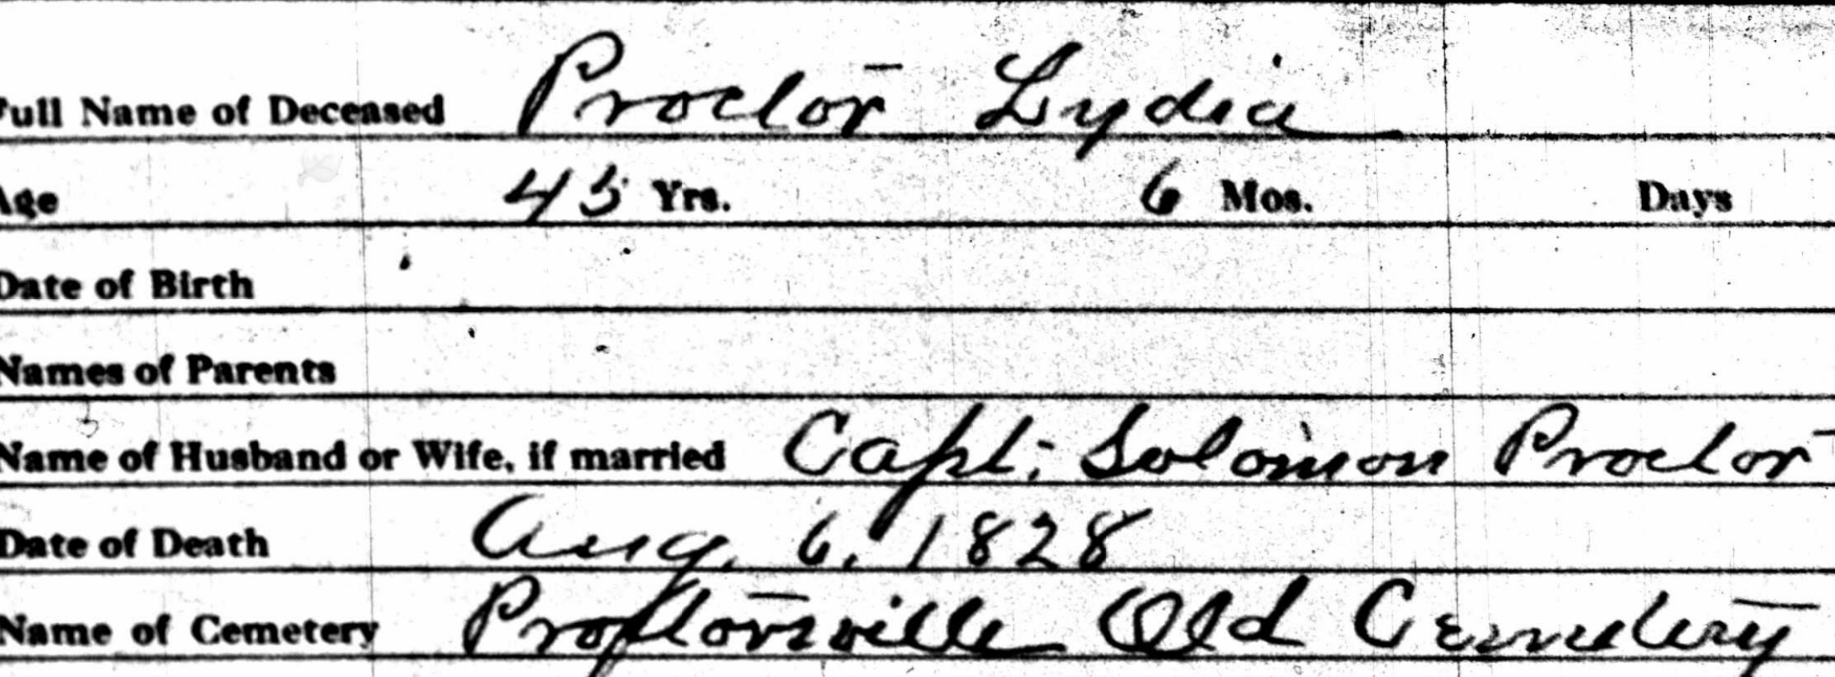 Full Name of Deceased Proctor Lydia
Age 45 Yrs. 6 Mos. Days
Date of Birth
Names of Parents
Name of Husband or Wife, if married Capt. Solomon Proctor
Date of Death Aug. 6, 1828
Name of Cemetery Proctorsville Old Cemetery